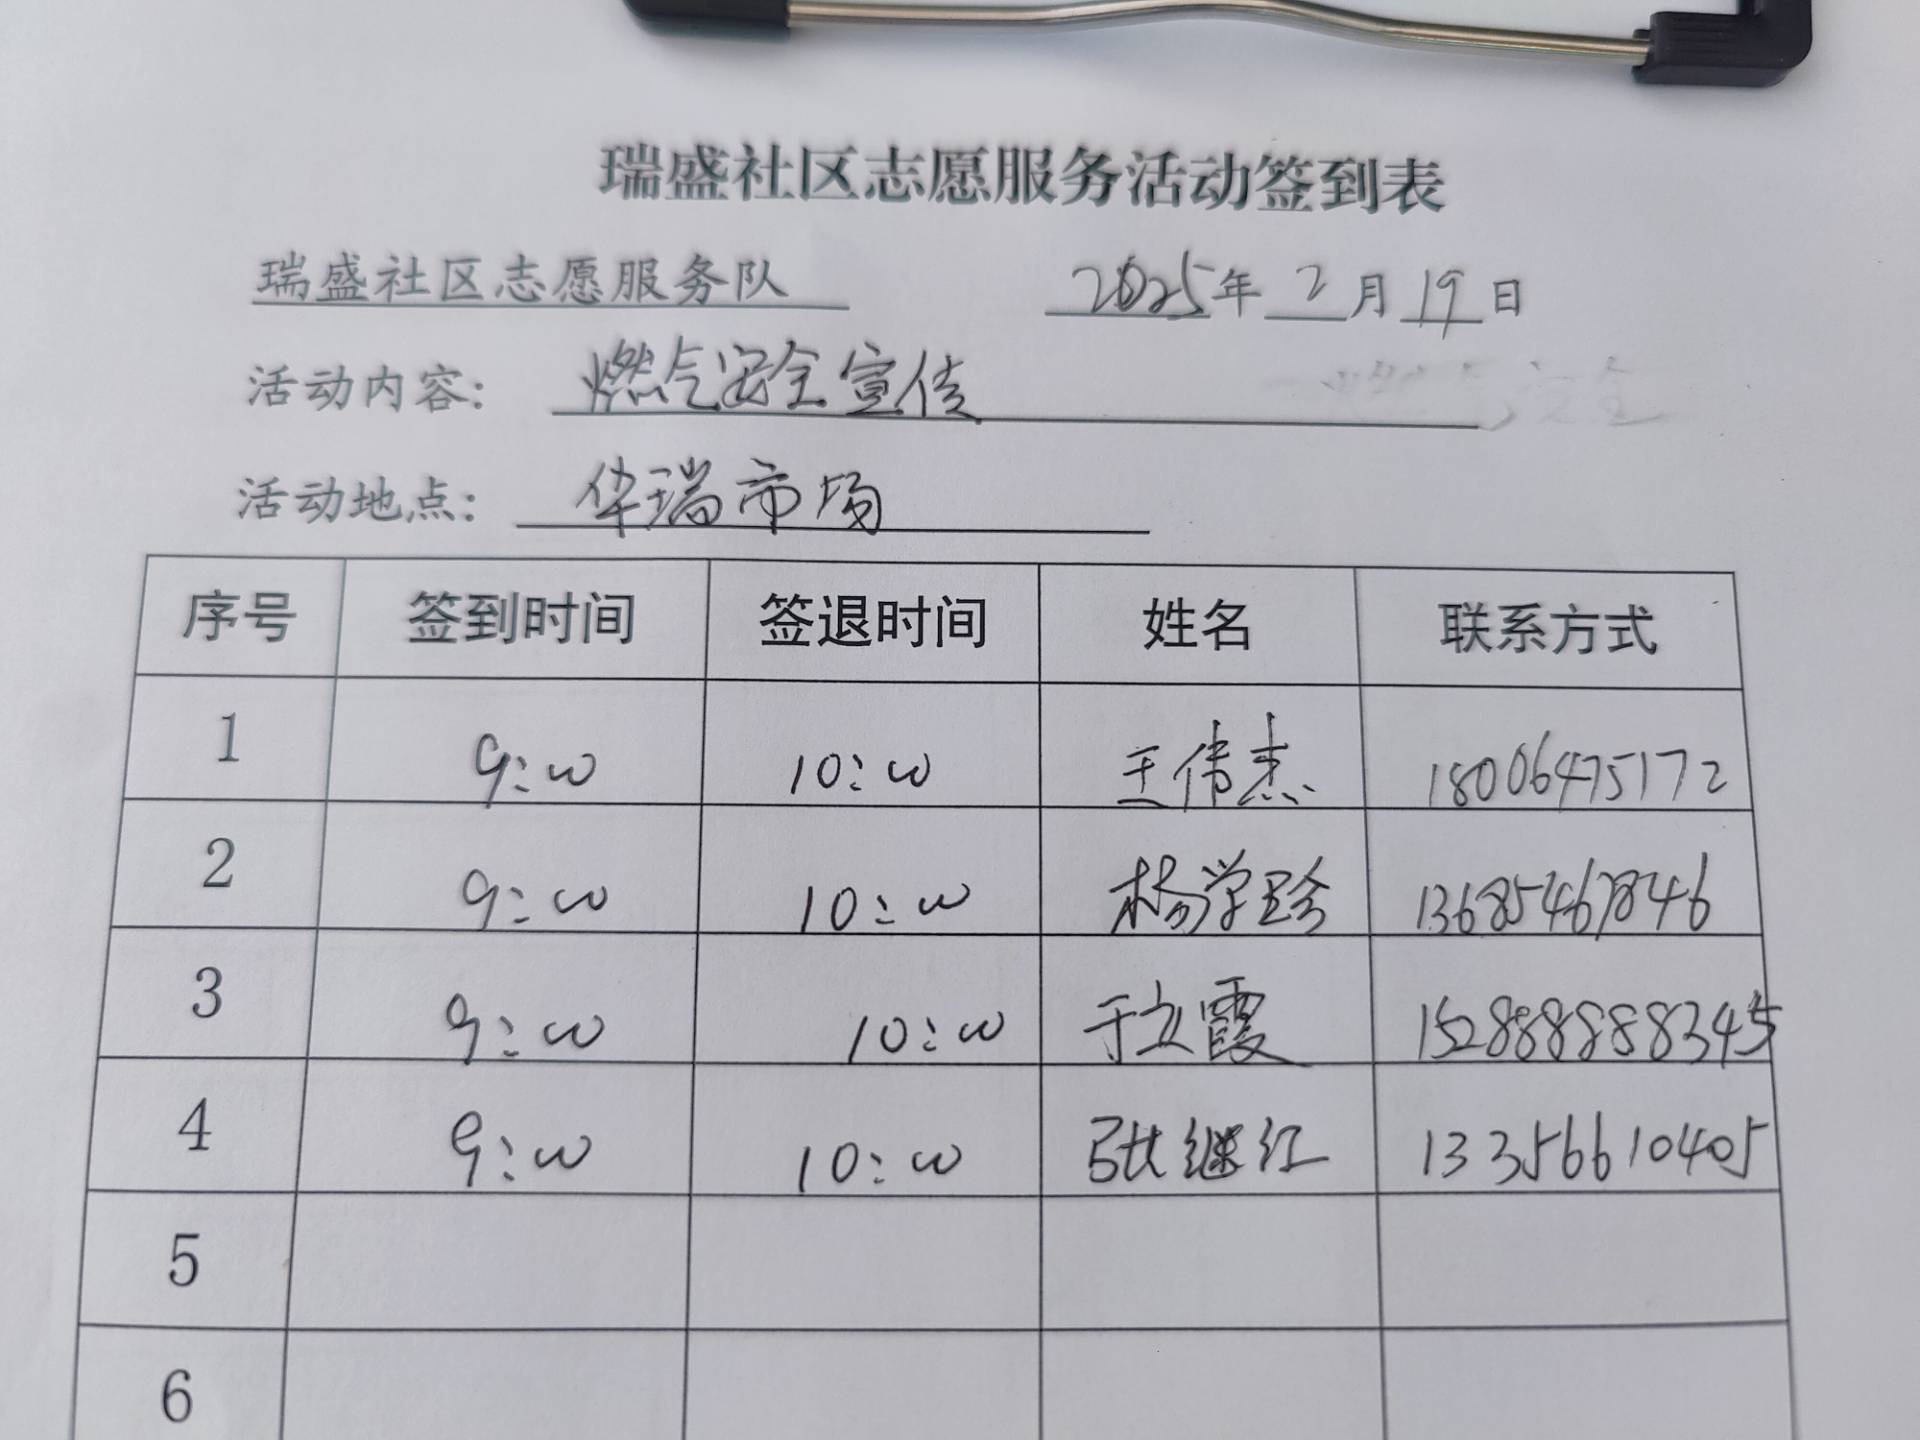 瑞盛社区志愿服务活动签到表
瑞盛社区志愿服务队 2025年 2月 19日
活动内容： 燃气安全宣传
活动地点： 华瑞市场
序号 签到时间 签退时间 姓名 联系方式
1 9:00 10:00 王伟杰 18006475172
2 9:00 10:00 杨学珍 13685467846
3 9:00 10:00 于立霞 15288888345
4 9:00 10:00 张继红 13356610405
5
6